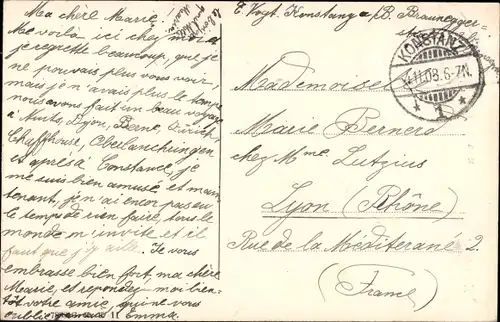 Ma chère Marie!
Me voilà ici chez moi
je regrette beaucoup, que je
ne pouvais plus vous voir,
mais je n'avais plus le temps
nous avons fait un beau voyage
à Lyon, Berne, Zürich,
Chaffhouse, Oberlanchringen
et après à Constance, je
me suis bien amusé, et main-
tenant, je n'ai encor pas eu
le temps de rien faire, tous le
monde m'invite et il
faut que j'y aille. Je vous
embrasse bien fort, ma chère
Marie, et repondez moi bien-
tôt votre amie, qui ne vous
oublie Emma.
E. Vogt. Konstanz a/B. Braunegger-
KONSTANZ
4.11.08.6-7N.
* 1 *
Mademoiselle
Marie Bernerd
chez Mme Lutzius
Lyon (Rhône)
Rue de la Méditerané 2
(France)